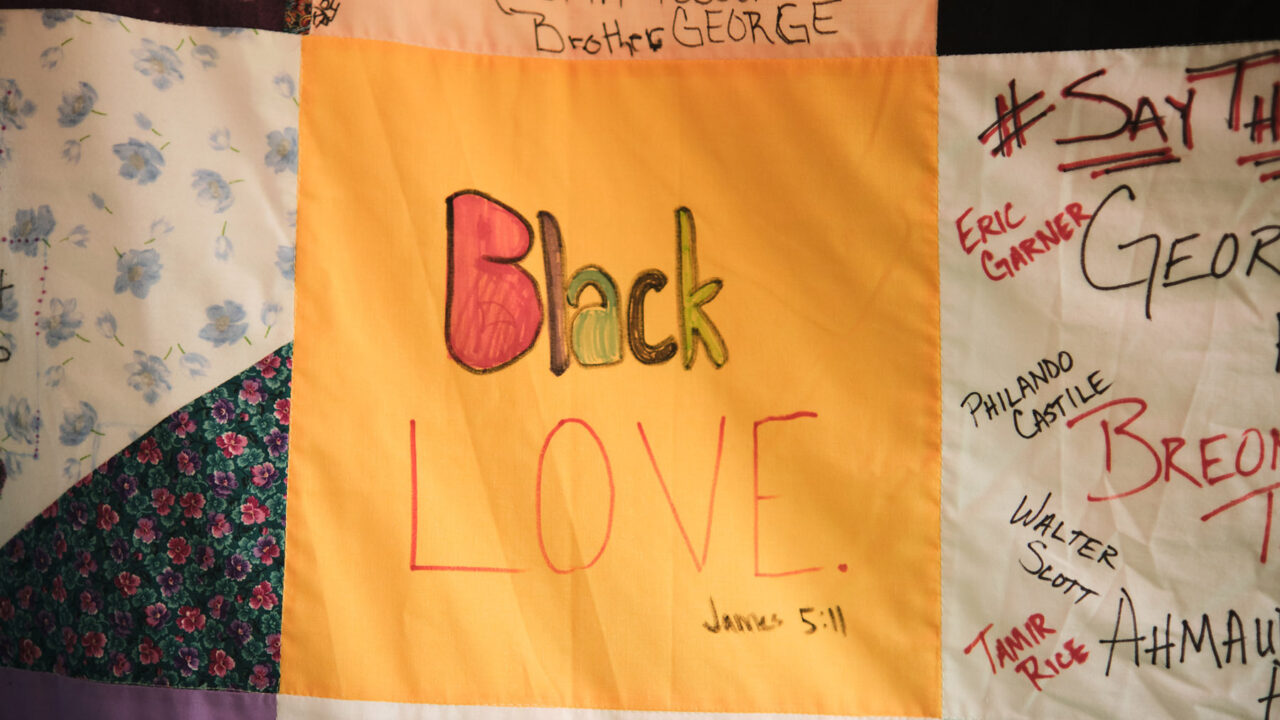 Brother GEORGE
Black
LOVE.
James 5:11
#SAY TH
ERIC
GARNER
GEOR
PHILANDO
CASTILE
BREON
T
WALTER
SCOTT
TAMIR
RICE
AHMAU